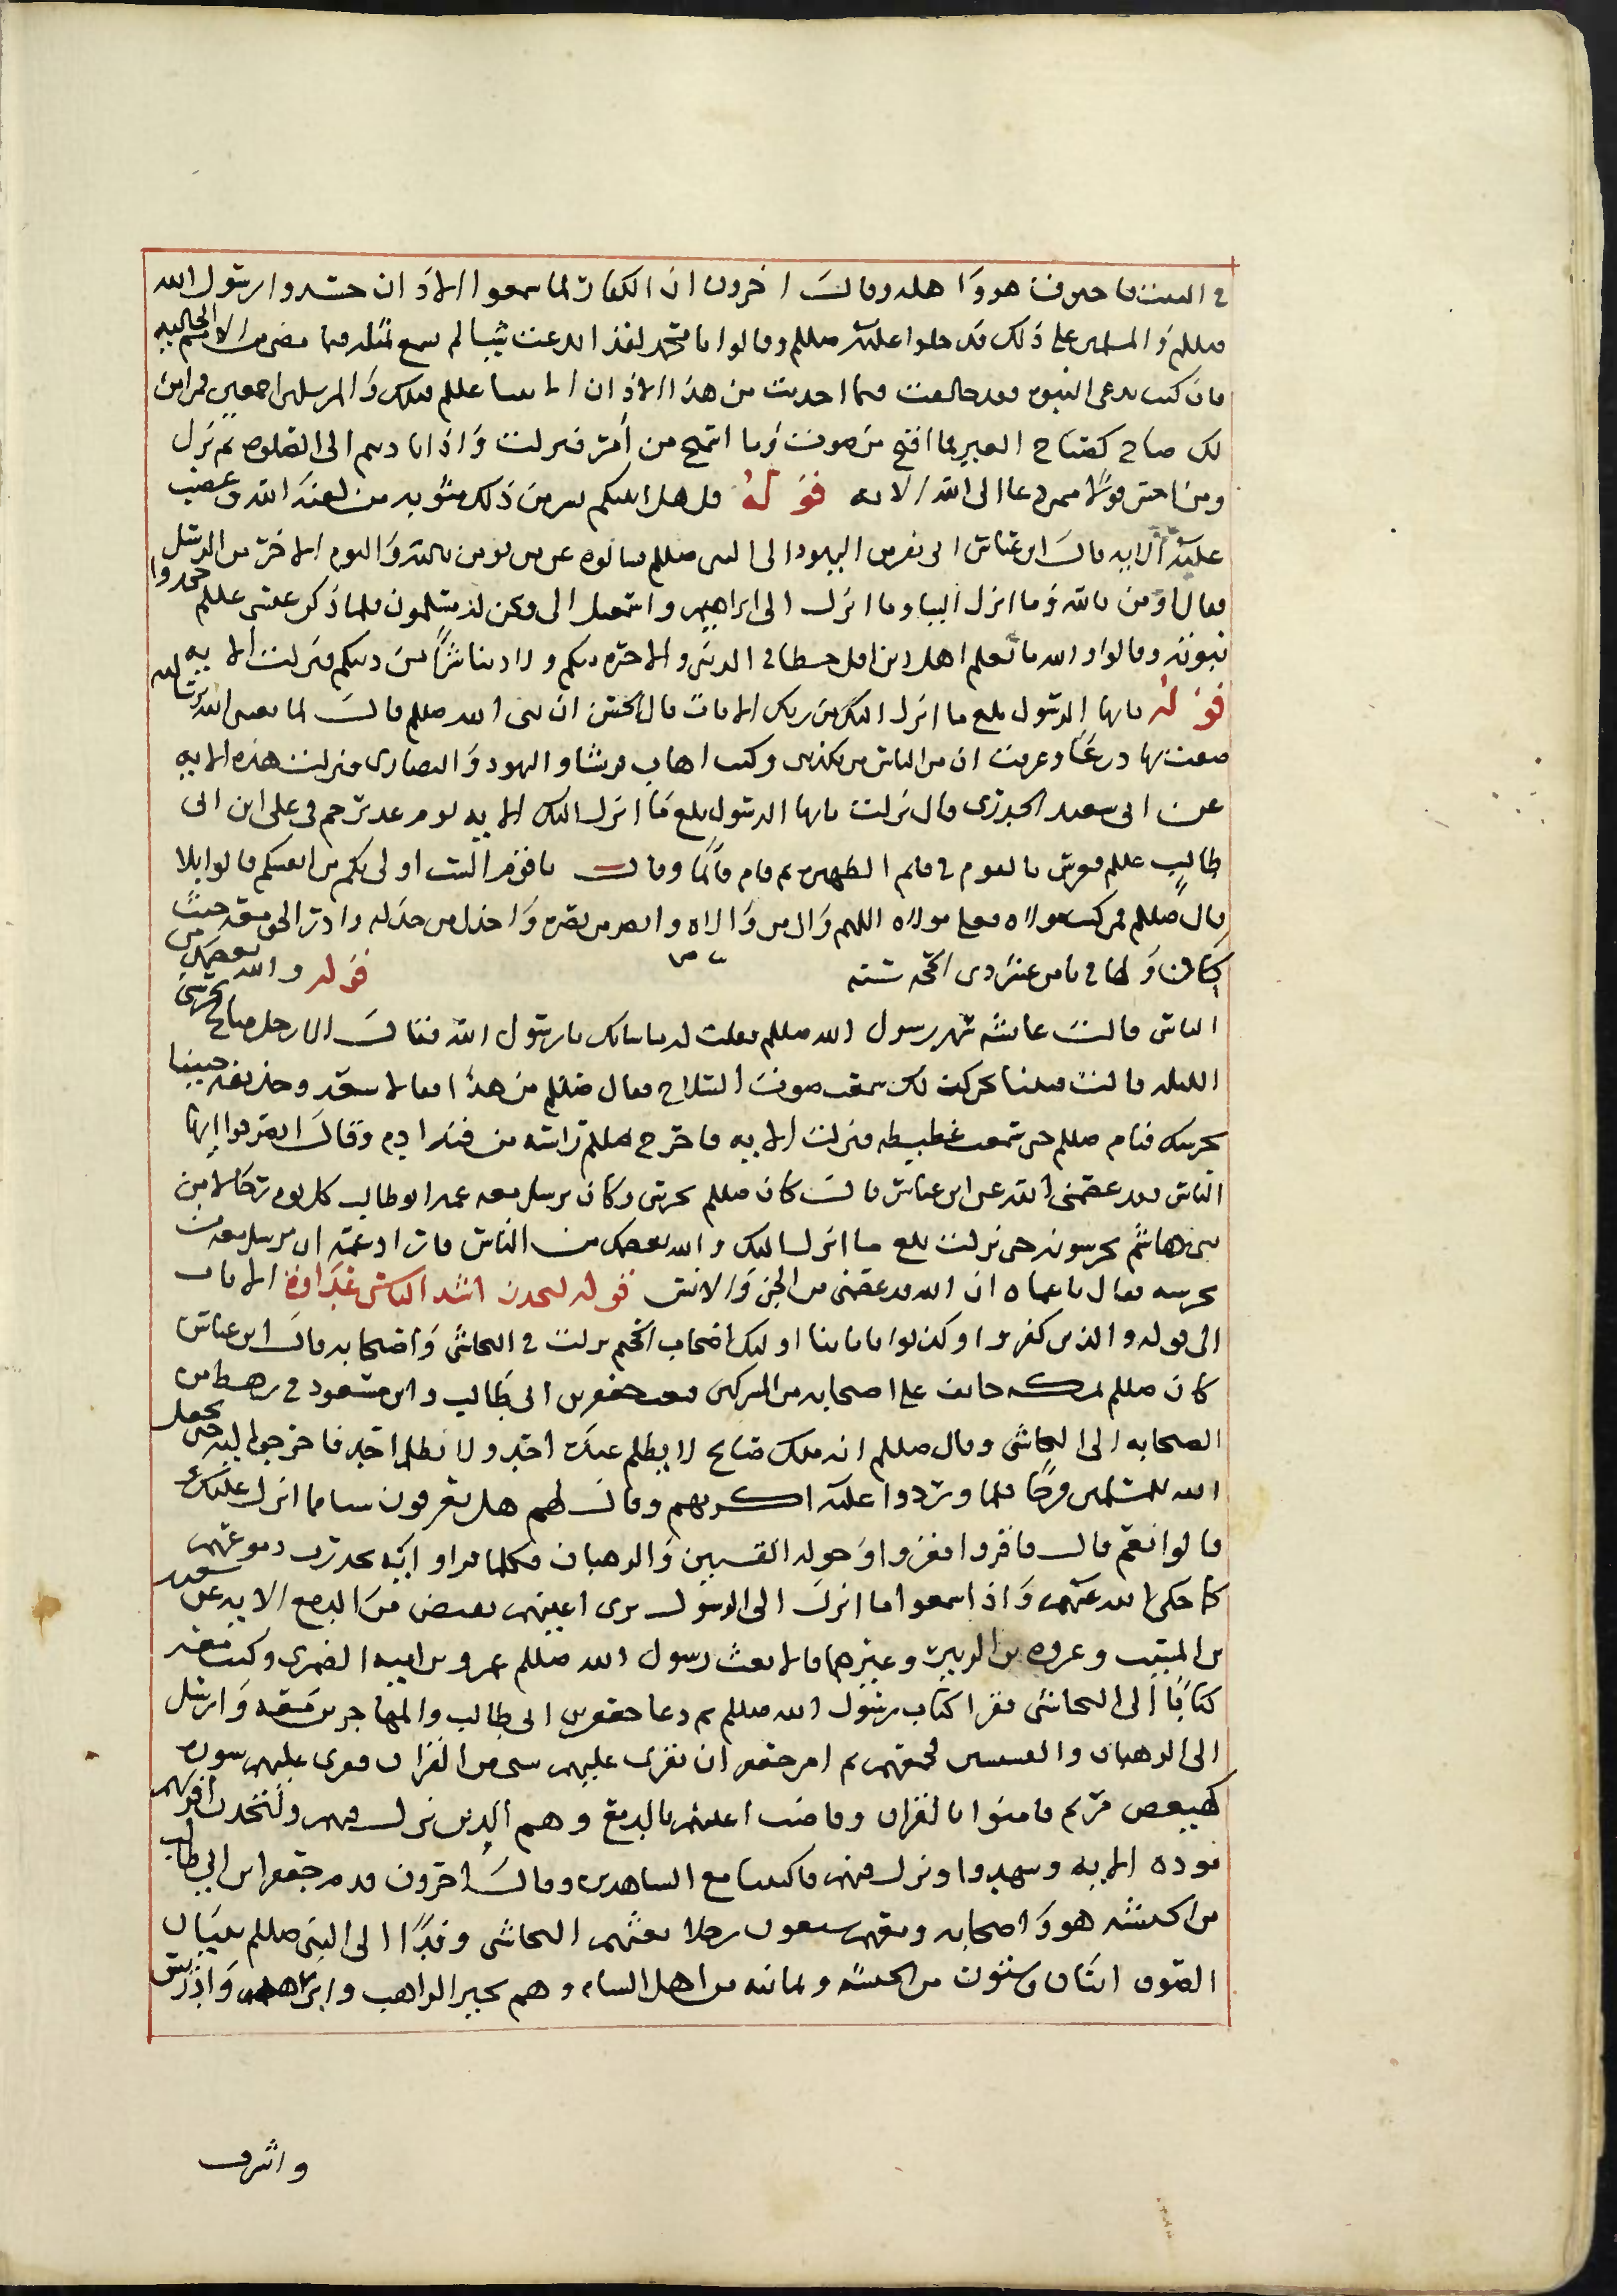 في البيت فاحترقت هو واهله وقال اخرون ان الكفار لما سمعوا الاذان حسدوا رسول الله
صللم والمسلمين على ذلك فدخلوا عليه صللم وقالوا يا محمد لقد ابدعت شيئا لم يسمع بمثله فيما مضى من الامم الخاليه
فان كنت تدعي النبوه فقد خالفت فيما احدثت من هذا الاذان الانبيا عللم قبلك والمرسلين اجمعين فمن اين
لك صياح كصياح العير فما اقبح من صوت وما اسمج من امر فنزلت واذا ناديتم الى الصلوه ثم نزل
ومن احسن قولا ممن دعا الى الله الايه قوله قل هل انبئكم بشر من ذلك مثوبه من لعنه الله وغضب
عليه الايه قال ابن عباس اتى نفر من اليهود الى النبي صللم فسالوه عن من يومن بالله واليوم الاخر من الرسل
فقال اومن بالله وما انزل الينا وما انزل الى ابراهيم واسمعيل الى ونحن له مسلمون فلما ذكر عيسى عللم جحدوا
نبوته وقالوا والله ما نعلم اهل دين اقل حظا في الدنيا والاخره منكم ولا دينا شرا من دينكم فنزلت الايه
قوله يايها الرسول بلغ ما انزل اليك من ربك الايات قال الحسن ان نبي الله صللم قال لما بعثني الله برسالته
ضقت بها درعا وعرفت ان من الناس من يكذبني وكنت اهاب قريشا واليهود والنصارى فنزلت هذه الايه
عن ابي سعيد الخدري قال نزلت يايها الرسول بلغ ما انزل اليك الايه يوم غدير خم في علي ابن ابي
طالب عللم فعرش بالقوم في قائم الظهيره ثم قام قائما وقال يا قوم الست اولى بكم من انفسكم قالوا بلا
قال صللم فمن كنت مولاه فعلي مولاه اللهم وال من والاه وانصر من نصره واخذل من خذله وادر الحق معه حيث
كان وكان في ثامن عشر ذي الحجه سنه قوله والله يعصمك من
الناس قالت عائشه سهر رسول الله صللم فقلت له ما شانك يا رسول الله فقال الا رجل صالح يحرسني
الليله قالت فبينا نحن كذلك سمعت صوت السلاح فقال صللم من هذا فقالا سعد وحذيفه جيينا
نحرسك فنام صللم حتى سمعت غطيطه فنزلت الايه فاخرج صللم راسه من قبه ادم وقال انصرفوا ايها
الناس فقد عصمني الله عن ابن عباس قال كان صللم يحرس وكان يرسل معه عمه ابو طالب كل يوم رجالا من
بني هاشم يحرسونه حتى نزلت بلغ ما انزل اليك والله يعصمك من الناس فاراد عمه ان يرسل معه من
يحرسه فقال يا عماه ان الله قد عصمني من الجن والانس قوله لتجدن اشد الناس عداوه الايات
الى قوله والذين كفروا وكذبوا باياتنا اوليك اصحاب الجحيم نزلت في النجاشي واصحابه قال ابن عباس
كان صللم بمكه خائف على اصحابه من المشركين فبعث جعفر بن ابي طالب وابن مسعود في رهط من
الصحابه الى النجاشي وقال صللم انه ملك صالح لا يظلم عنده احد ولا يظلم احد فاخرجوا اليه حتى يجعل
الله للمسلمين فرجا فلما وردوا عليه اكرمهم وقال لهم هل تعرفون شيا مما انزل عليكم
قالوا نعم قال فاقروا فقروا وحوله القسيسين والرهبان فكلما قراوا ايه تحدرت دموعهم
كما حكى الله عنهم واذا سمعوا ما انزل الى الرسول ترى اعينهم تفيض من الدمع الايه عن سعيد
بن المسيب وعروه بن الزبير وغيرهما قالا بعث رسول الله صللم عمرو بن اميه الضمري وكتب معه
كتابا الى النجاشي فقرا كتاب رسول الله صللم ثم دعا جعفر بن ابي طالب والمهاجرين معه وارسل
الى الرهبان والقسيسين فجمعهم ثم امر جعفر ان يقرى عليهم شي من القران فقرى عليهم سوره
كهيعص مريم فامنوا بالقران وفاضت اعينهم بالدمع وهم الذين نزل فيهم ولتجدن اقربهم
موده الايه وشهدوا ونزل فيهم فاكتبنا مع الشاهدين وقال اخرون قدم جعفر ابن ابي طالب
من الحبشه هو واصحابه ومعهم سبعون رجلا بعثهم النجاشي وفدا الى النبي صللم بثياب
الصوف اثنان وستون من الحبشه وثمانيه من اهل الشام وهم بحير الراهب وابراهيم وادريس
واشرف